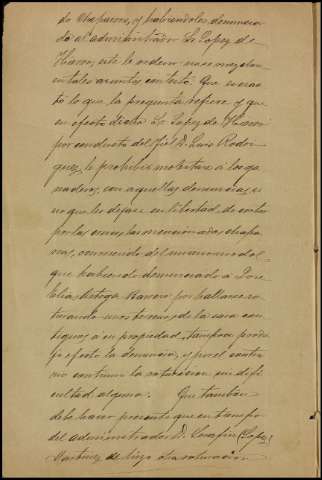 de chaparros, y habiendolos denuncia
do al administrador Sr. Lopez de
Haro, este le ordenó no se mezclara
en tales asuntos contestó: Que es cier
to lo que la pregunta refiere y que
en efecto dicho Sr. Lopez de Haro
por conducto del fiel D. Luis Rodri
guez, le prohibió molestase á los ga
naderos, con aquellas denuncias, si
no que les dejase en libertad de cortar
por las ramas las mencionadas chapa
rras, conviniendo del mismo modo
que habiendo denunciado á José
Ortega Ramon por hallarse ro
turando unos terrenos de la casa con
tiguos á su propiedad, tampoco produ
jo efecto la denuncia, y por el contra
rio continuó la roturacion sin difi
cultad alguna. Que tambien
debe hacer presente que en tiempo
del administrador D. Serafin Lopez
Martinez se hizo otra roturacion